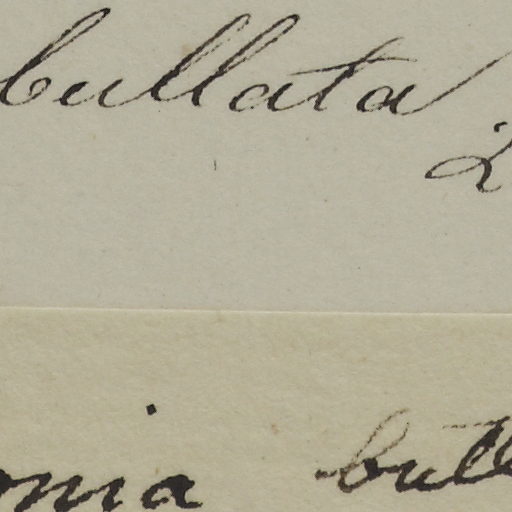 bullata
2
onia bull